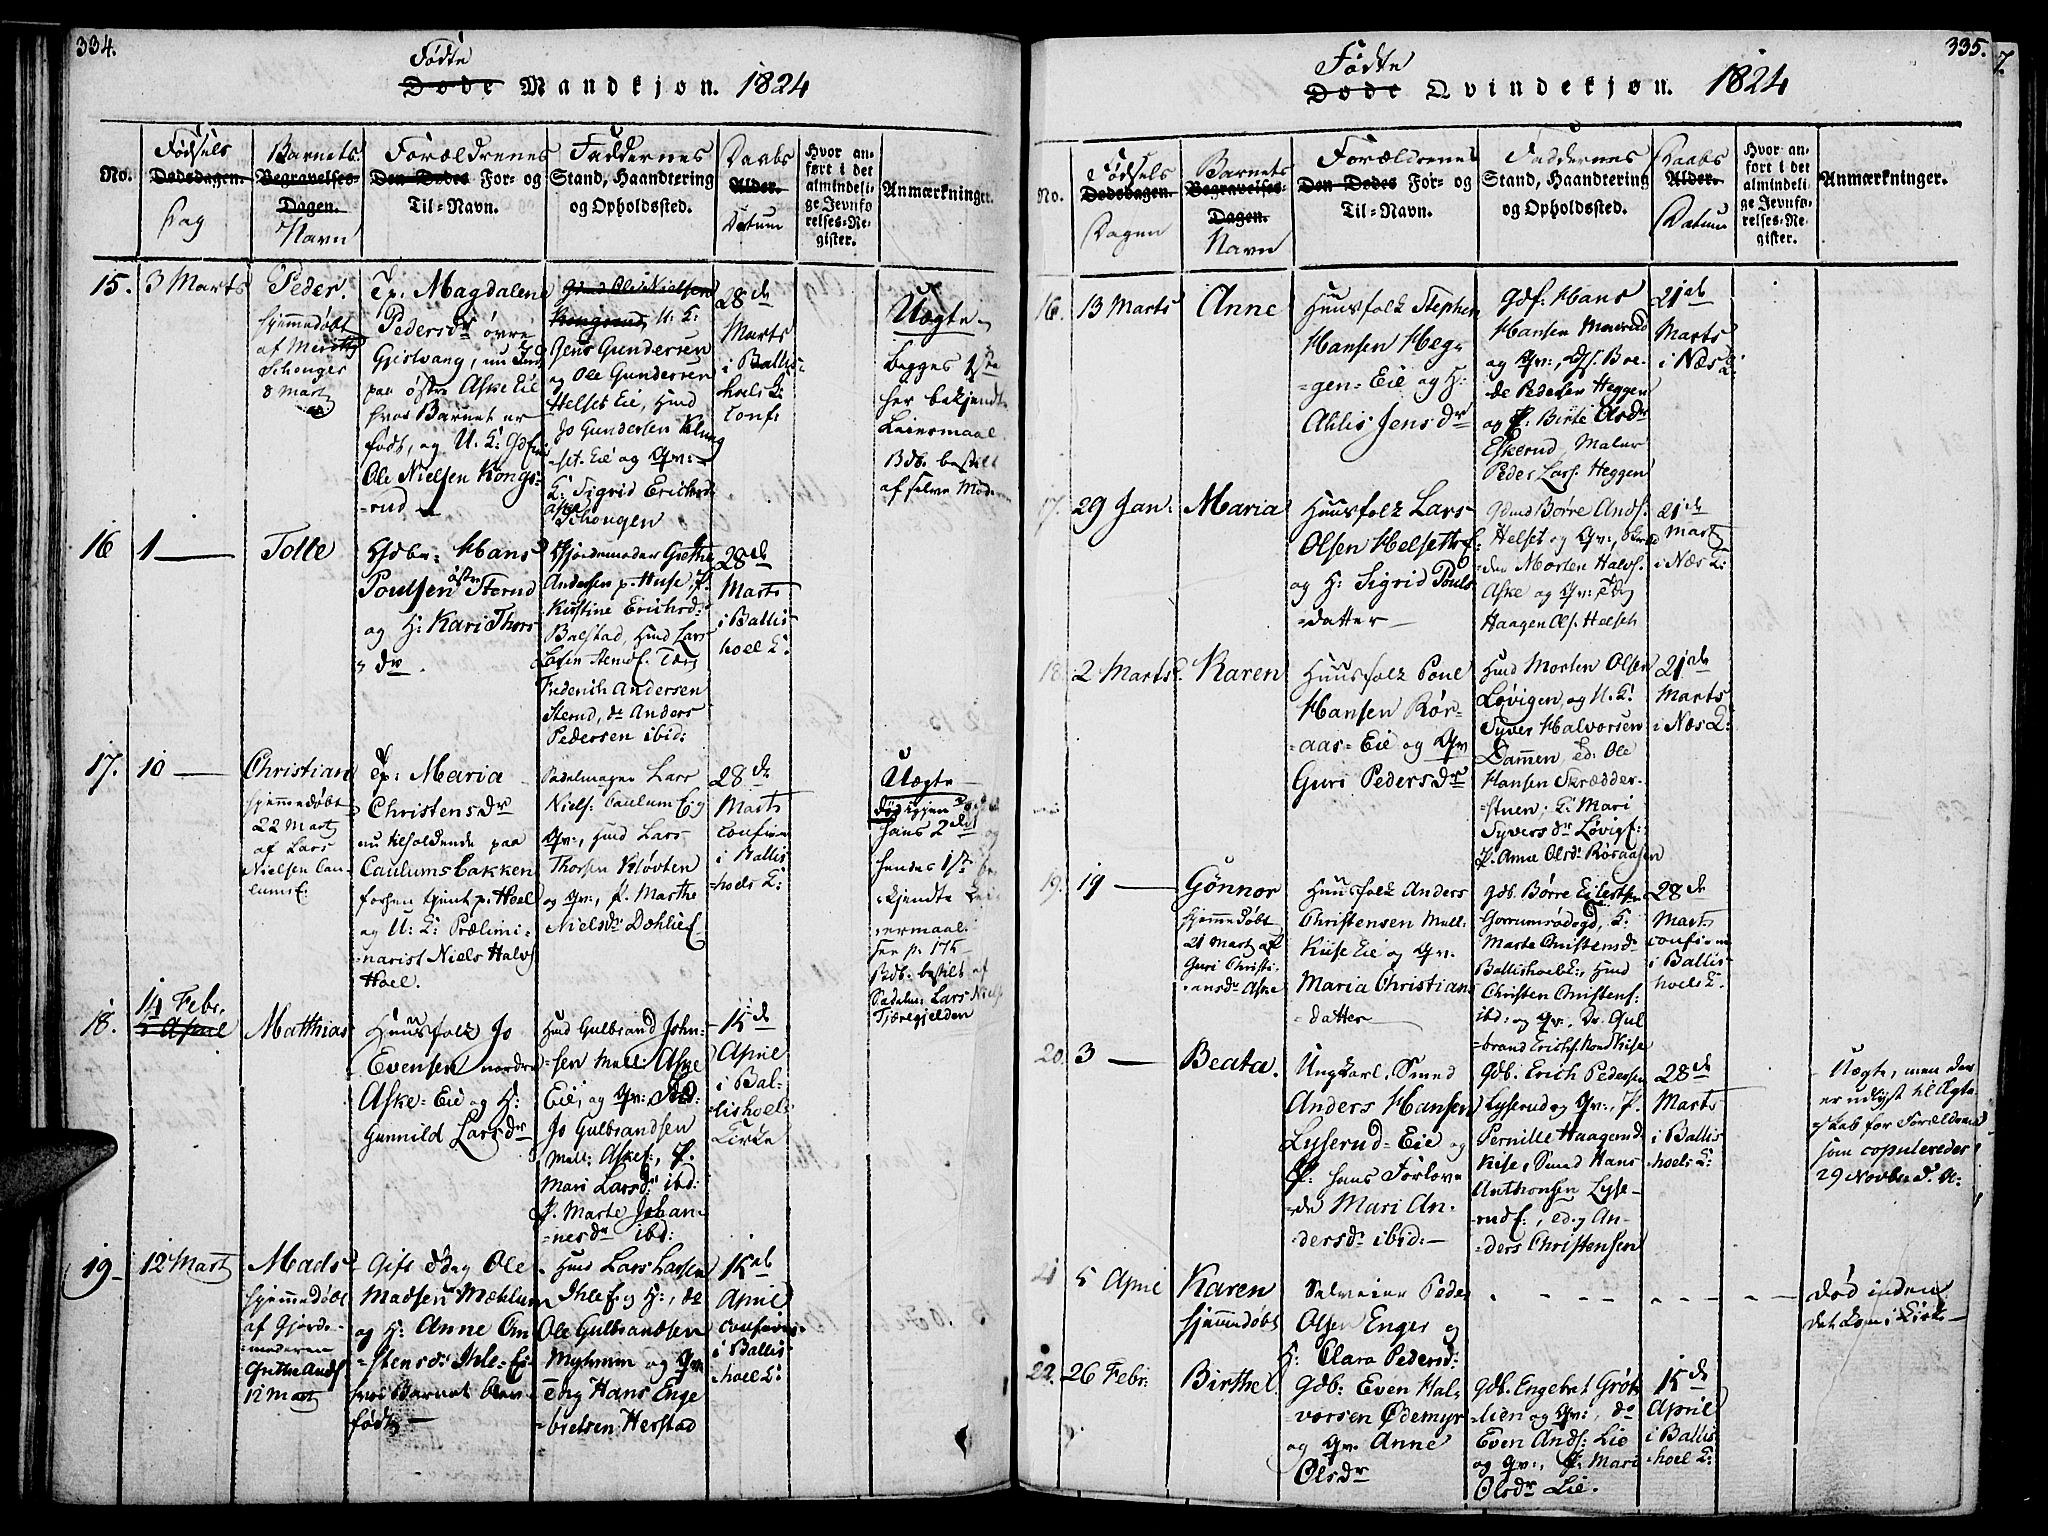 334.
Fødte
Døde Mandkjøn. 1824
No.
Fødsels
Dødsdagen.
Dag
Barnets
Begravelses-
Dagen.
Navn
Forældrenes
Den Dødes For- og
Til-Navn.
Faddernes
Stand, Haandtering
og Opholdssted.
Daabs
Alder.
Datum
Hvor an-
ført i det
almindeli-
ge Jevnfø-
relses-Re-
gister.
Anmærkninger.
15.
3 Marts
Peder.
hjemmedøbt
af
Schonger
8 Marts
Ep: Magdalene
Pedersdr øvre
Gjestvang, nu
paa østre Aske Eie
hvor Barnet er
født, og U. K:
Ole Nielsen Kongs-
=rud
Gmd Ole Nielsen
Kongsrud U: K:
Jens Gundersen
og Ole Gundersen
Helset Eie, Hmd
Jo Gundersen Klung
=set Eie og Qv:
K: Sigrid Erichsd
Aske
Schongen
28de
Marts
i Ballis-
hoels K:
conf:
Uægte
begges 1ste
her bekjendte
Leiermaal
Bdb. bestilt
af selve Moderen
16
1 —
Tolle
Gdbr: Hans
Poulsen østre Sterud
og H: Kari Thors
=dr.
Gjordemoder Grethe
Andersen p. Huse, P.
Kirstine Erichsdr
Balstad, Hmd Lars
Frederich Andersen
Sterud, do Anders
Pedersen ibid:
28de
Marts
i Ballis-
hoel K:
17.
10 —
Christian
hjemmedøbt
22 Marts
af Lars
Nielsen Cau-
lumsE.
Ep: Maria
Christensdr
nu tilholdende paa
Caulumsbakken
forhen tjent p. Hoel
og U: K: Prælimi-
=narist Niels Halvs
Hoel.
Sadelmager Lars
Niels: Caulum Eg
Qv:, Hmd Lars
Thorsen Kløvten
og Qv:, P. Marthe
Nielsdr DøhlieE.
28de
Marts
confirm
i Ballis-
=hoels K:
Uægte
hans 2det og
hendes 1ste be
=kjendte Lei
=ermaal.
see p. 175
Bdb: bestilt af
Sadelm: Lars Niels
Tjæregjelden
18.
14 Febr.
5 April
Matthias
Huusfolk Jo
Evensen nordre
Aske-Eie og H:
Gunnild Larsdr
Hmd Gulbrand John-
=sen Mell: Aske
Eie, og Qv:,
Jo Gulbrandsen
Mell: AskeE:, P.
Mari Larsdr ibd:
P. Marte Johan-
=nesdr ibd:
15de
April
i Bal-
=lishoels
Kirke
19
12 Marts
Mads
hjemmedøbt
af Gjorde-
=moderen
Grethe Ands
12 Marts
Gift Ole
Madsen Mæhlum
og H: Anne Om
=stensdr Ihle-Ei
hvor Barnet blev
født
Hmd Lars Larsen
IhleE og H:, do
Ole Gulbrandsen
Myhrum og Qv
Hans Enge
=bretsen Herstad
15de
April
confirm
i Ballis-
=hoel K:
335.
7.
Fødte
Døde Qvindekjøn. 1824
No.
Fødsels
Dødsdagen.
Dagen
Barnets
Begravelses-
Dagen.
Navn
Forældrenes
Den Dødes For- og
Til-Navn.
Faddernes
Stand, Haandtering
og Opholdssted.
Daabs
Alder.
Datum
Hvor an-
ført i det
almindeli-
ge Jevnfø-
relses-Re-
gister.
Anmærkninger.
16.
13 Marts
Anne
Huusfolk Stephen
Hansen Heg-
=gen-Eie og H:
Ahlis Jensdr
Gdf: Hans
Hansen
og Qv:, Bre-
de Pedersen Heggen
og P. Birte Olsdr
Eskerud, Maler
Peder Lars: Heggen
21de
Marts
i Næs K:
17.
29 Jan:
Maria
Huusfolk Lars
Olsen Helseth E:
og H: Sigrid Pouls
=datter
Gdmd Børre Ands:
Helset og Qv:,
Morten Halvs.
Aske og Qv:,
Haagen Ols: Helset
21de
Marts
i Næs K:
18.
2 Marts
Karen
Huusfolk Poul
Hansen Rør-
=aas-Eie og Qv
Guri Pedersdr
Hmd Morten Olsen
Løvigen, og U. K:
Syver Halvorsen
Dammen, Ole
Hansen Skrædder-
=stuen; K: Mari
Syversdr LøvigE:
P. Anne Olsdr Røraasen
21de
Marts
i Næs K:
19.
19 —
Gönnor
hjemmedøbt
21 Marts af
Guri Christi-
=ansdr Aske
Huusfolk Anders
Christensen Mell:
Kiise Eie og Qv.
Maria Christians
=datter
Gdb. Børre Eilertsen
Gorrumrødegd, K.
Marte Christensdr
BallishoelE:, Hmd
Christen Christens:
ibd: og Qv:, Dr. Gul
=brand Erichs. Nord Kise
28de
Marts
confirm
i Ballis-
hoels K:
20.
3 —
Beata.
Ungkarl, Smed
Anders Hansen
Lyserud-Eie og
P: hans Forlove
=de Mari An-
=dersdr ibid:
Gdb. Erich Pedersen
Lyserud og Qv:, P.
Pernille Haagensd.
Kise, Smed Hans
Anthonsen Lyse-
=rudE:, An-
=ders Christensen
28de
Marts
i Ballis
=hoels K:
Uægte, men der
er udlyst til Ægte
skab for Forældrene
som copuleredes
29 Novber d. A:
21
5 April
Karen
hjemmedøbt
Selveier Peder
Olsen Enger og
H: Clara Pedersd:
Død inden
det kom i Kirke
22.
26 Febr:
Birthe
Gdb: Even Hal-
vorsen Ødemyr
og Qv. Anne
Olsdr
Gdb. Engebret Grøt
=lien og Qv:, do
Even Ands: Lie
og Qv:, P. Mari
Olsdr Lie.
15de
April
i Ballis
=hoel K: